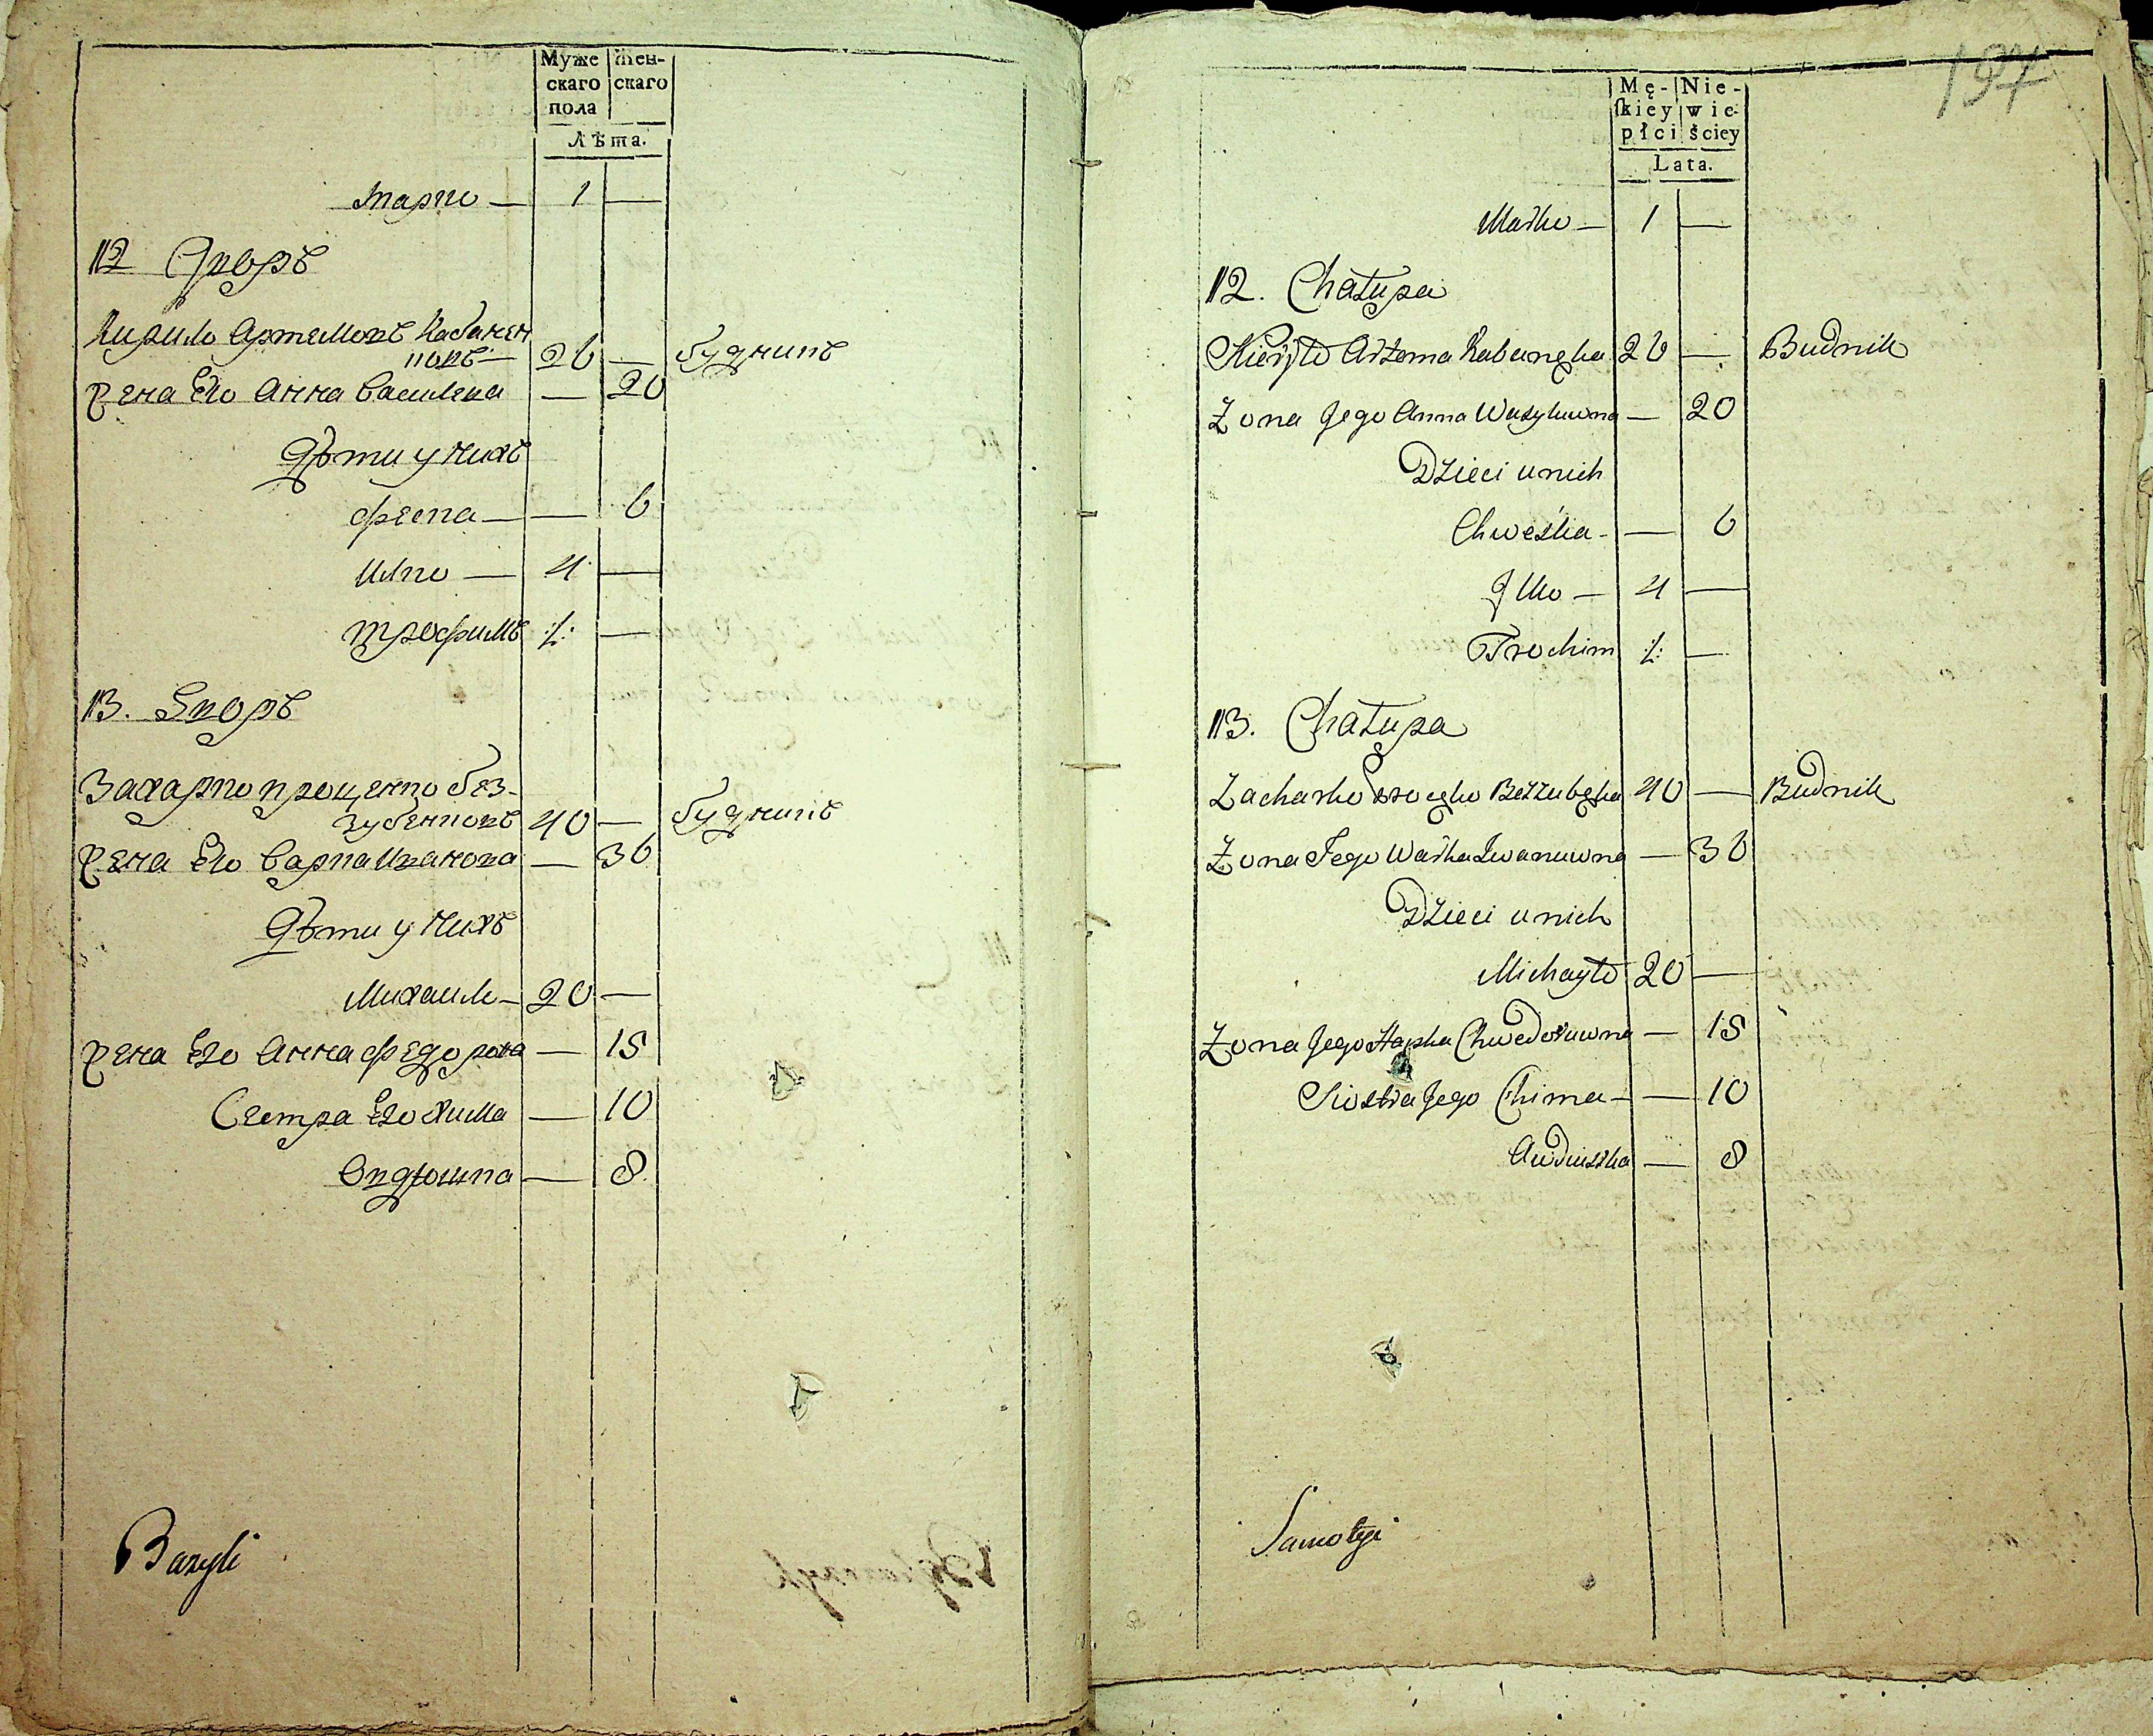 Муже
скаго
пола
Жен-
скаго
Лѣта.
Марко — 1 —
12 Дворъ
Кирило Артемовъ Кабанен
ковъ — 26 — будникъ
Жена Его Анна Василева — 20
Дѣти у нихъ
Феска — — 6
Илко — 4 —
Трофимъ ·/· —
13. Дворъ
Захарко Проценко Без-
зубенковъ 40 — будникъ
Жена Его Варка Иванова — 36
Дѣти у нихъ
Михаило — 20 —
Жена Его Анна Федорова — 18
Сестра Его Хима — 10
Овдюшка — 8
Bazyli
197
Mę-
skiey
płci
Nie-
wie-
ściey
Lata.
Marko — 1 —
12. Chałupa
Kieryło Artema Kabanęka 26 — Budnik
Żona Jego Anna Wasyluwna — 20
Dzieci u nich
Chweśka — — 6
Jlko — 4 —
Trochim ·/· —
13. Chałupa
Zacharko Procęko Bezzubęka 40 — Budnik
Żona Jego Warka Iwanuwna — 36
Dzieci u nich
Michayło 20 —
Żona Jego Hapka Chwedoruwna — 18
Siostra Jego Chima — — 10
Awdiuszka — 8